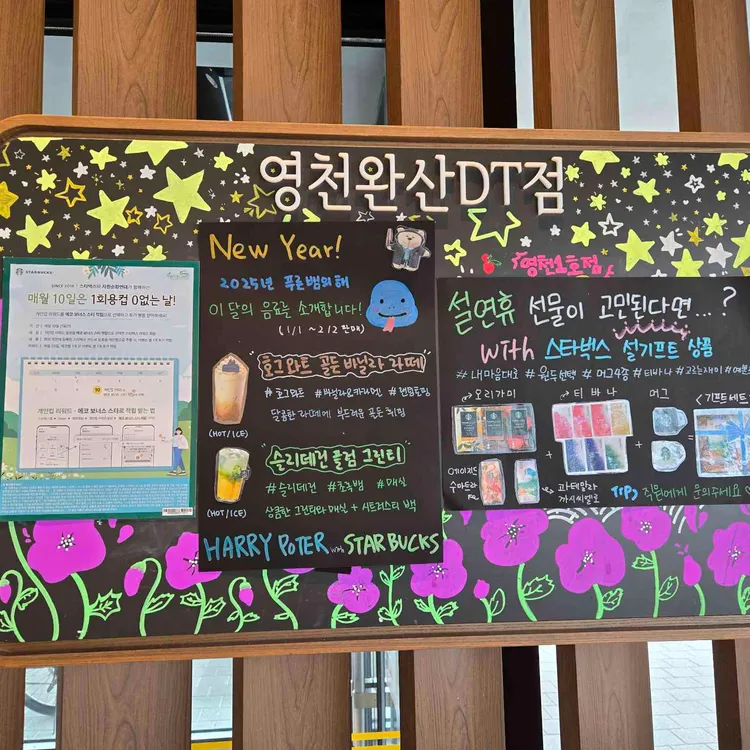 영천완산DT점
영천1호점
STARBUCKS
매월 10일은 1회용컵 0없는 날!
개인컵 리워드 - 에코 보너스 스타로 적립 받는 법
New Year!
2025년 푸른뱀의해
이 달의 음료를 소개합니다!
(1/1 ~ 2/2 판매)
호그와트 골든 바닐라 라떼
#호그와트 #바닐라&카라멜
달콤한 라떼에 부드러운 골든 휘핑
(HOT/ICE)
슬리데린 플럼 그린티
#슬리데린 #초록뱀 #매실
상큼한 그린티와 매실 + 시트러스티 백
(HOT/ICE)
HARRY POTER with STARBUCKS
설연휴 선물이 고민된다면...?
with 스타벅스 설기프트 상품
#내마음대로 #원두선택 #머그4종 #티바나 #고르는재미
오리가미
티바나
머그
<기프트세트
+
+
과테말라
Tip) 직원에게 문의주세요